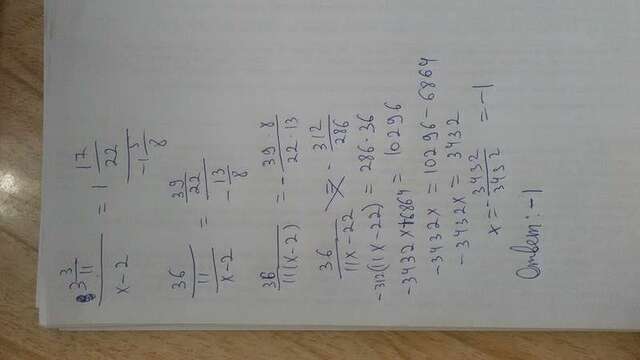 (3 3/11)/(x-2) = (1 17/22)/(-1 5/8)
(36/11)/(x-2) = (39/22)/(-13/8)
36/(11(x-2)) = -(39·8)/(22·13)
36/(11x-22) = -312/286
-312(11x-22) = 286·36
-3432x+6864 = 10296
-3432x = 10296-6864
-3432x = 3432
x = -3432/3432 = -1
Ответ: -1